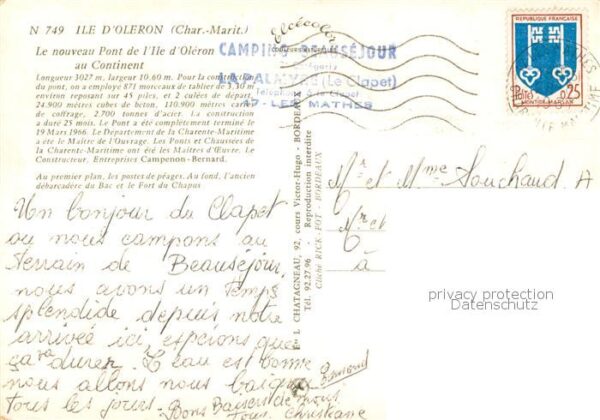 N 749 ILE D'OLERON (Char.-Marit.)
Le nouveau Pont de l'Ile d'Oléron
au Continent
Longueur 3027 m, largeur 10.60 m. Pour la construction
du pont, on a employé 871 morceaux de tablier de 3.30 m
environ reposant sur 45 piles, et 2 culées de départ.
24.900 mètres cubes de béton, 110.900 mètres carrés
de coffrage, 2.700 tonnes d'acier. La construction
a duré 25 mois. Le Pont a été complètement terminé le
19 Mars 1966. Le Département de la Charente-Maritime
a été le Maître de l'Ouvrage. Les Ponts et Chaussées
de la Charente-Maritime ont été les Maîtres d'Œuvre. Le
Constructeur. Entreprises Campenon-Bernard.
Au premier plan, les postes de péages. Au fond, l'ancien
débarcadère du Bac et le Fort du Chapus
Un bonjour du Clapet
ou nous campons au
terrain de Beauséjour,
nous avons un temps
splendide depuis notre
arrivée ici, espérons que
ça va durer. L'eau est bonne
nous allons nous baigner
tous les jours. Bons Baisers de nous
Tous. Christiane
Elcécolor
CAMPING BEAUSÉJOUR
(Le Clapet)
17 - LES MATHES
E. L. CHATAGNEAU, 92, cours Victor-Hugo - BORDEAUX
Tél. 92.27.96 Reproduction interdite
Cliché RICK-FOT - BORDEAUX
REPUBLIQUE FRANÇAISE
Postes 0,25
MONT-DE-MARSAN
Mr et Mme Souchaud A
Mr et
à
privacy protection
Datenschutz